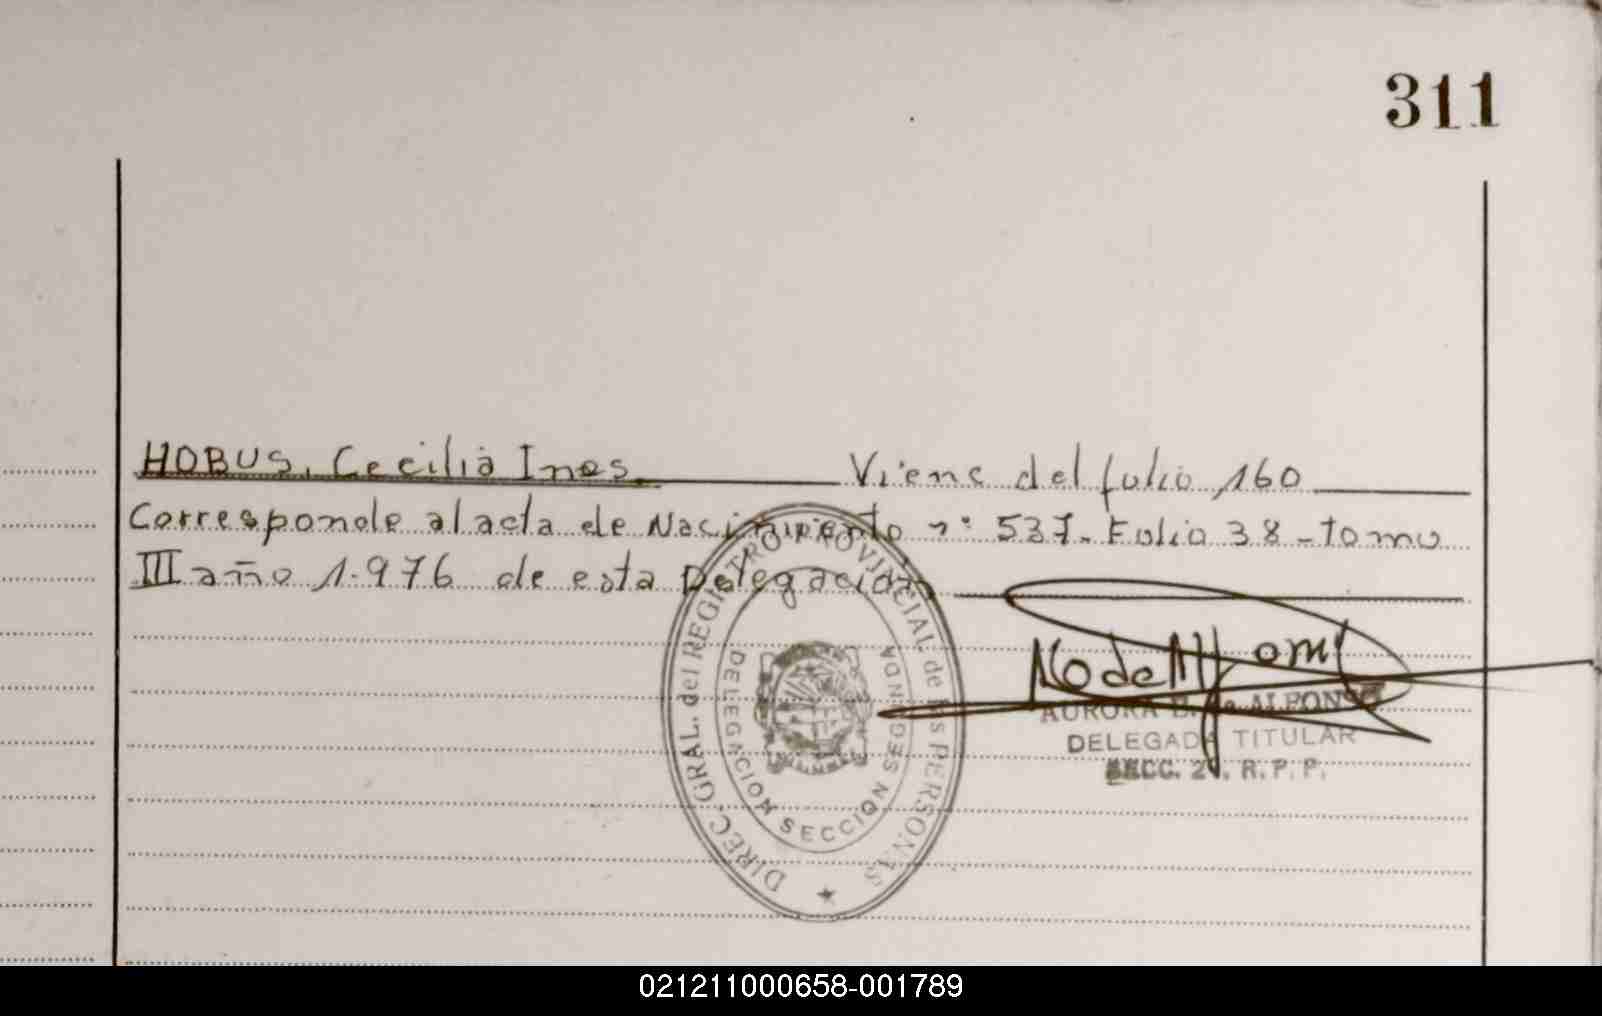 311
HOBUS, Cecilia Ines. Viene del folio 160
Corresponde al acta de Nacimiento nº 537. Folio 38 - tomo
III año 1.976 de esta Delegación
DIREC. GRAL. del REGISTRO PROVINCIAL de las PERSONAS
DELEGACION SECCION SEGUNDA
AURORA de ALFONSO
DELEGADA TITULAR
SECC. 2ª, R. P. P.
021211000658-001789